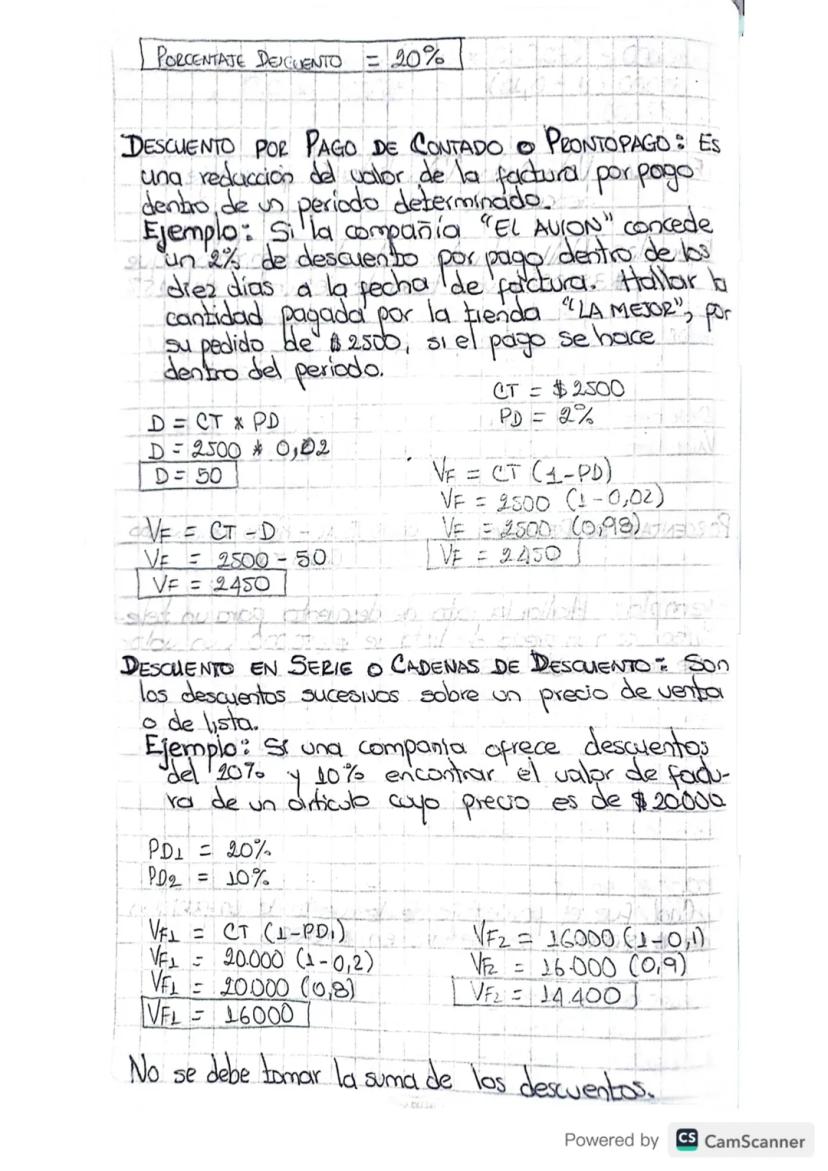 PORCENTAJE DESCUENTO = 20%
DESCUENTO POR PAGO DE CONTADO O PRONTOPAGO: Es
una reducción del valor de la factura por pago
dentro de un periodo determinado.
Ejemplo: Si la compañía "EL AVION" concede
un 2% de descuento por pago dentro de los
diez días a la fecha de factura. Hallar la
cantidad pagada por la tienda "LA MEJOR", por
su pedido de $2500, si el pago se hace
dentro del periodo.
CT = $2500
PD = 2%
D = CT x PD
D = 2500 * 0,02
D = 50
VF = CT - D
VF = 2500 - 50
VF = 2450
VF = CT (1-PD)
VF = 2500 (1-0,02)
VF = 2500 (0,98)
VF = 2450
DESCUENTO EN SERIE O CADENAS DE DESCUENTO: Son
los descuentos sucesivos sobre un precio de venta
o de lista.
Ejemplo: Si una compañia ofrece descuentos
del 20% y 10% encontrar el valor de factu-
ra de un artículo cuyo precio es de $20000
PD1 = 20%
PD2 = 10%
VF1 = CT (1-PD1)
VF1 = 20.000 (1-0,2)
VF1 = 20000 (0,8)
VF1 = 16000
VF2 = 16000 (1-0,1)
VF2 = 16.000 (0,9)
VF2 = 14.400
No se debe tomar la suma de los descuentos.
Powered by CS CamScanner